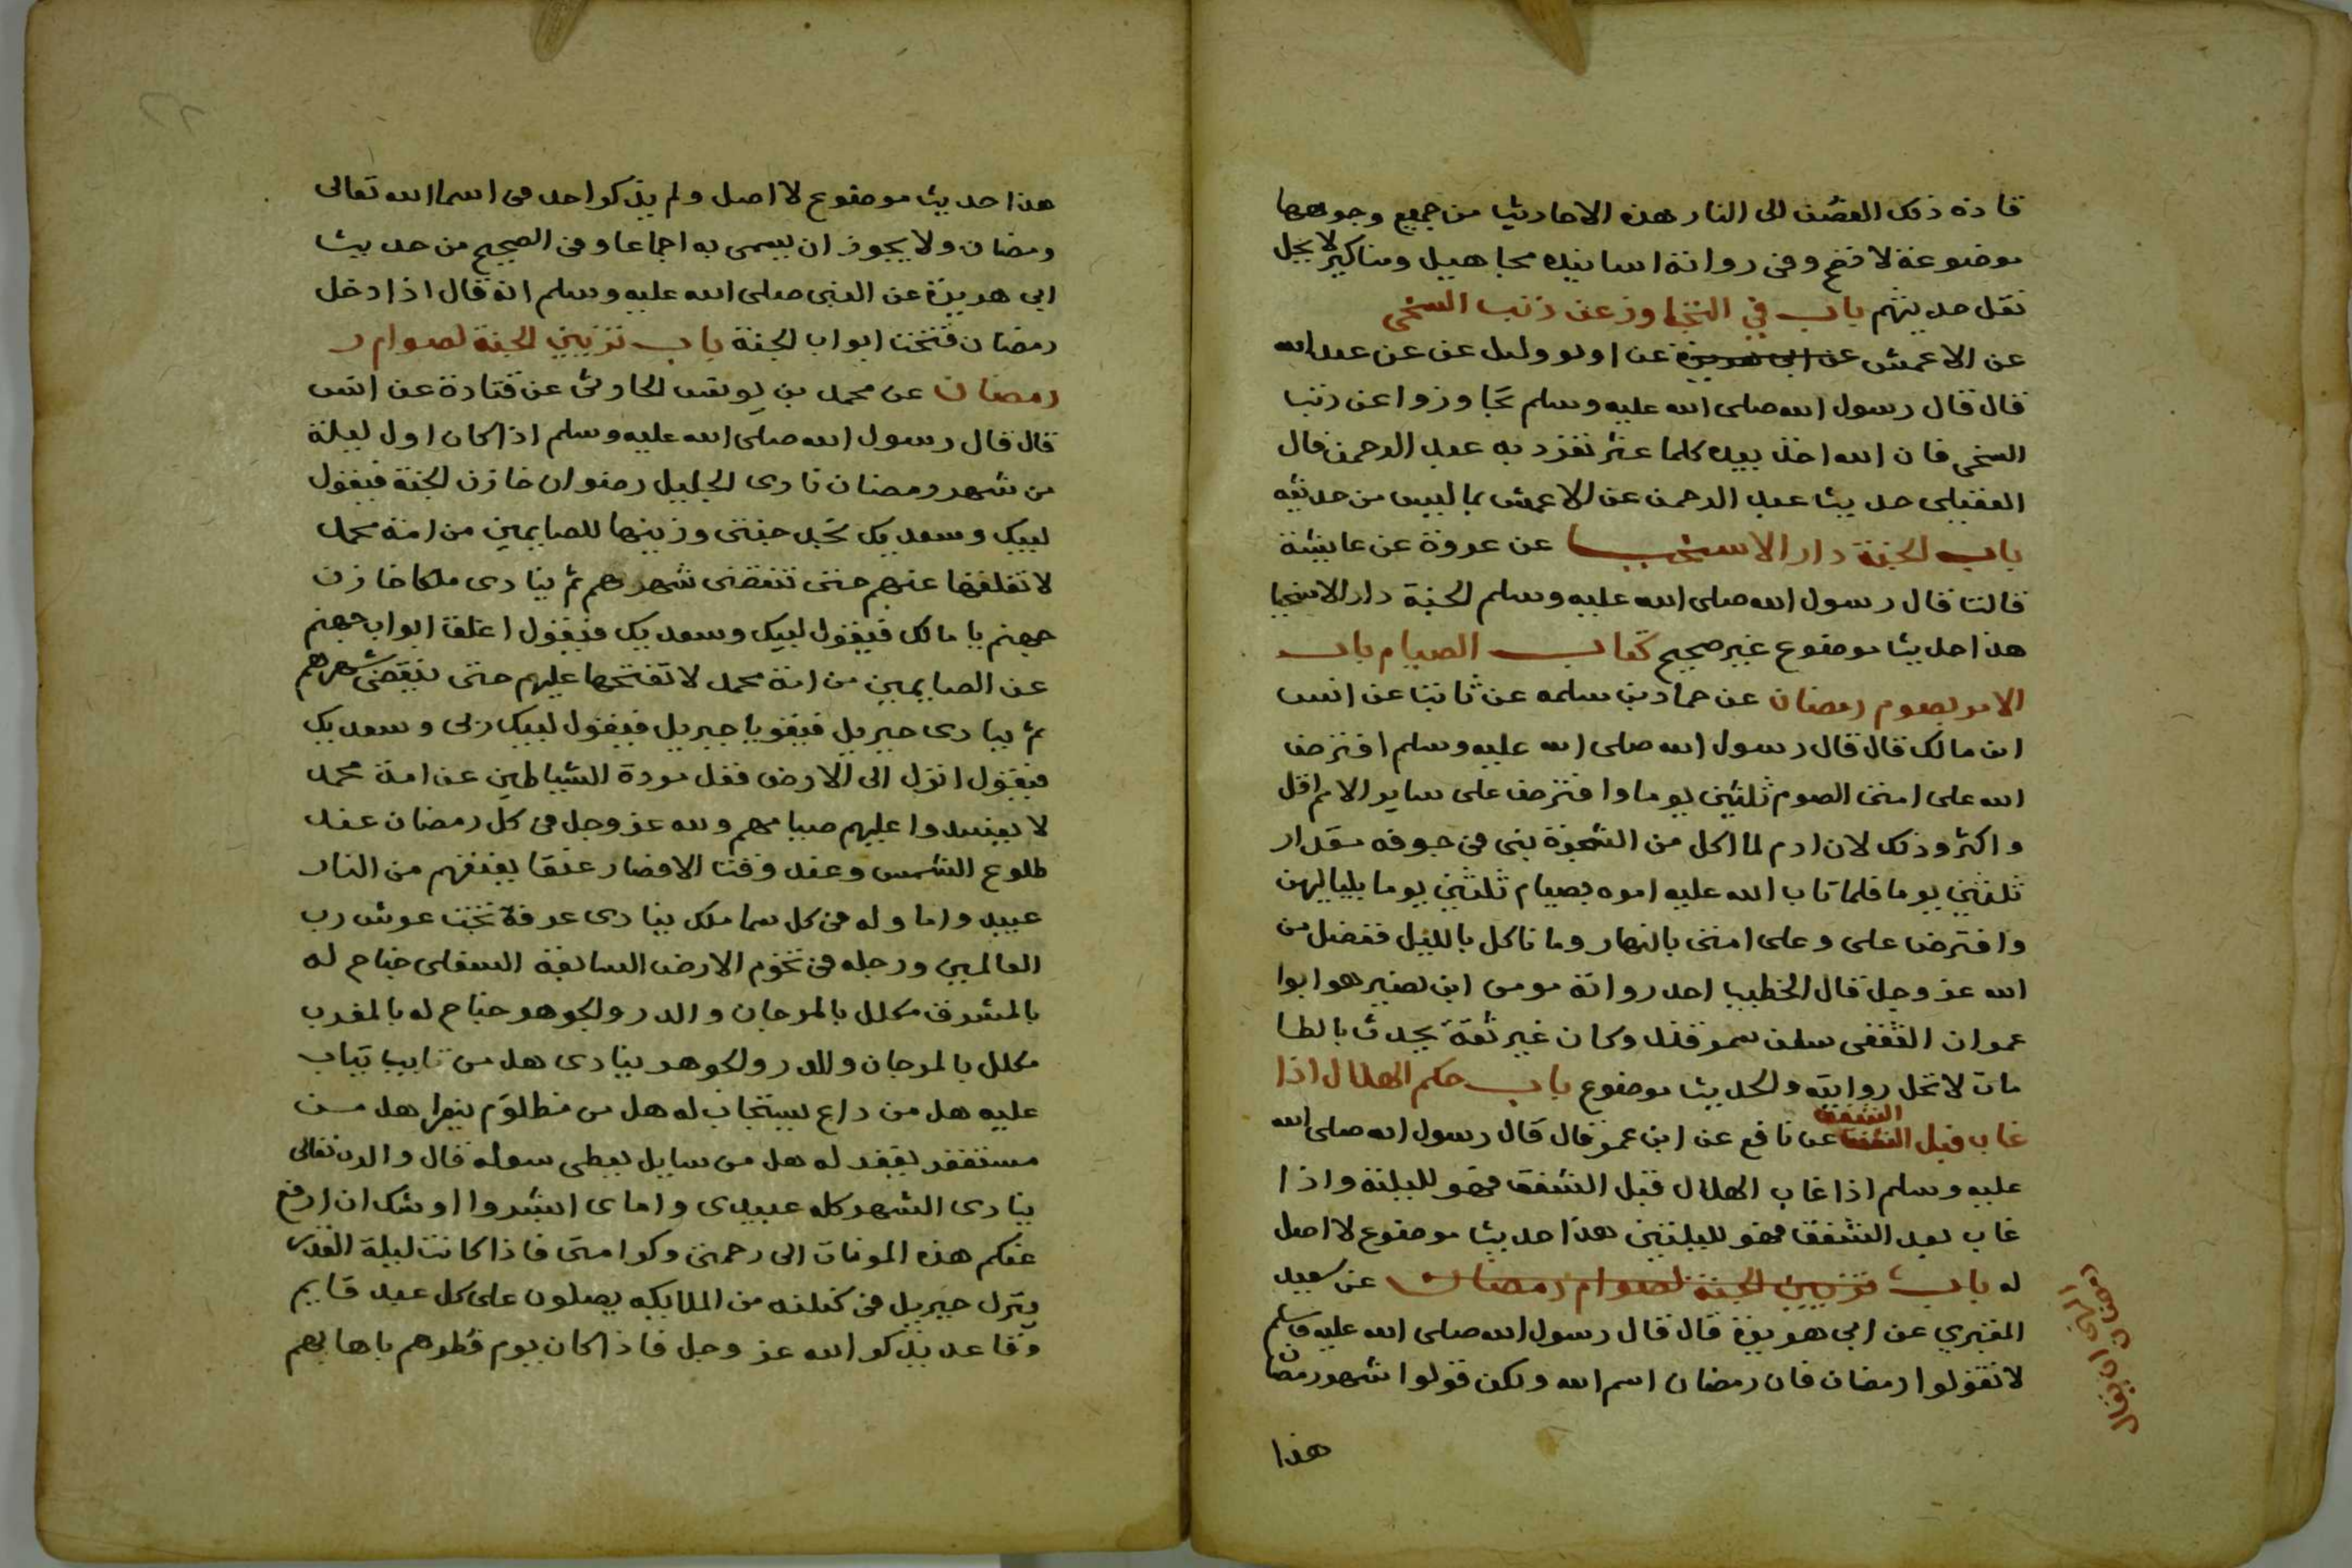 قاده ذلك الغصن الى النار هذه الاحاديث من جميع وجوهها
موضوعة لا تصح وفى رواتة اسانيده مجاهيل ومناكير لا يحل
نقل حديثهم باب في التجاوز عن ذنب السخى
عن الاعمش عن ابى هريرة عن اوبو وليل عن عن عبد الله
قال قال رسول الله صلى الله عليه وسلم تجاوزوا عن ذنب
السخى فان الله اخذ بيده كلما عثر تفرد به عبد الرحمن قال
العقيلى حديث عبد الرحمن عن الاعمش بما ليس من حديثه
باب الجنة دار الاسخيا عن عروة عن عايشة
قالت قال رسول الله صلى الله عليه وسلم الجنة دار الاسخيا
هذا حديث موضوع غير صحيح كتاب الصيام باب
الامر بصوم رمضان عن حماد بن سلمه عن ثابت عن انس
ابن مالك قال قال رسول الله صلى الله عليه وسلم افترض
الله على امتى الصوم ثلثين يوما وافترض على ساير الامم اقل
واكثر وذلك لان ادم لما اكل من الشجرة بقى فى جوفه مقدار
ثلثين يوما فلما تاب الله عليه امره بصيام ثلثين يوما بلياليهن
وافترض على وعلى امتى بالنهار وما ناكل بالليل ففضل من
الله عز وجل قال الخطيب احد رواتة موسى ابن نصير هو ابوا
عمران الثقفى سكن سمرقند وكان غير ثقة يحدث بالطا
مات لا تحل روايته والحديث موضوع باب حكم الهلال اذا
غاب قبل الشفق عن نافع عن ابن عمر قال قال رسول الله صلى الله
عليه وسلم اذا غاب الهلال قبل الشفق فهو لليلة واذا
غاب بعد الشفق فهو لليلتين هذا حديث موضوع لا اصل
له باب تزيين الجنة لصوام رمضان عن سعيد
المقبري عن ابى هريرة قال قال رسول الله صلى الله عليه وسلم
لا تقولوا رمضان فان رمضان اسم الله ولكن قولوا شهر رمضان
هذا
النهى ان يقال
رمضان
هذا حديث موضوع لا اصل ولم يذكر احد فى اسما الله تعالى
رمضان ولا يجوز ان يسمى به اجماعا وفى الصحيح من حديث
ابى هريرة عن النبى صلى الله عليه وسلم انه قال اذا دخل
رمضان فتحت ابواب الجنة باب تزيين الجنة لصوام ر
رمضان عن محمد بن يونس الحارثى عن قتادة عن انس
قال قال رسول الله صلى الله عليه وسلم اذا كان اول ليلة
من شهر رمضان نادى الجليل رضوان خازن الجنة فيقول
لبيك وسعديك نجد جنتى وزينها للصايمين من امة محمد
لا تغلقها عنهم حتى تنقضى شهرهم ثم ينادى ملكا خازن
جهنم يا مالك فيقول لبيك وسعديك فيقول اغلق ابواب جهنم
عن الصايمين من امة محمد لا تفتحها عليهم حتى ينقضى شهرهم
ثم ينادى جبريل فيقو يا جبريل فيقول لبيك ربى وسعديك
فيقول انزل الى الارض فغل مردة الشياطين عن امة محمد
لا يفسدوا عليهم صيامهم ولله عز وجل فى كل رمضان عند
طلوع الشمس وعند وقت الافطار عتقا يعتقهم من النار
عبيد واما وله فى كل سما ملك ينادى عرفة تحت عرش رب
العالمين ورجله فى تخوم الارض السابعة السفلى جناح له
بالمشرق مكلل بالمرجان والدر والجوهر جناح له بالمغرب
مكلل بالمرجان والدر والجوهر ينادى هل من تايب يتاب
عليه هل من داع يستجاب له هل من مظلوم ينصر هل من
مستغفر يغفر له هل من سايل يعطى سوله قال والله تعالى
ينادى الشهر كله عبيدى واماى ابشروا اوشك ان ارفع
عنكم هذه المونات الى رحمتى وكرامتى فاذا كانت ليلة القدر
ينزل جبريل فى كبكبه من الملايكه يصلون على كل عبد قايم
وقاعد يذكر الله عز وجل فاذا كان يوم فطرهم باها بهم